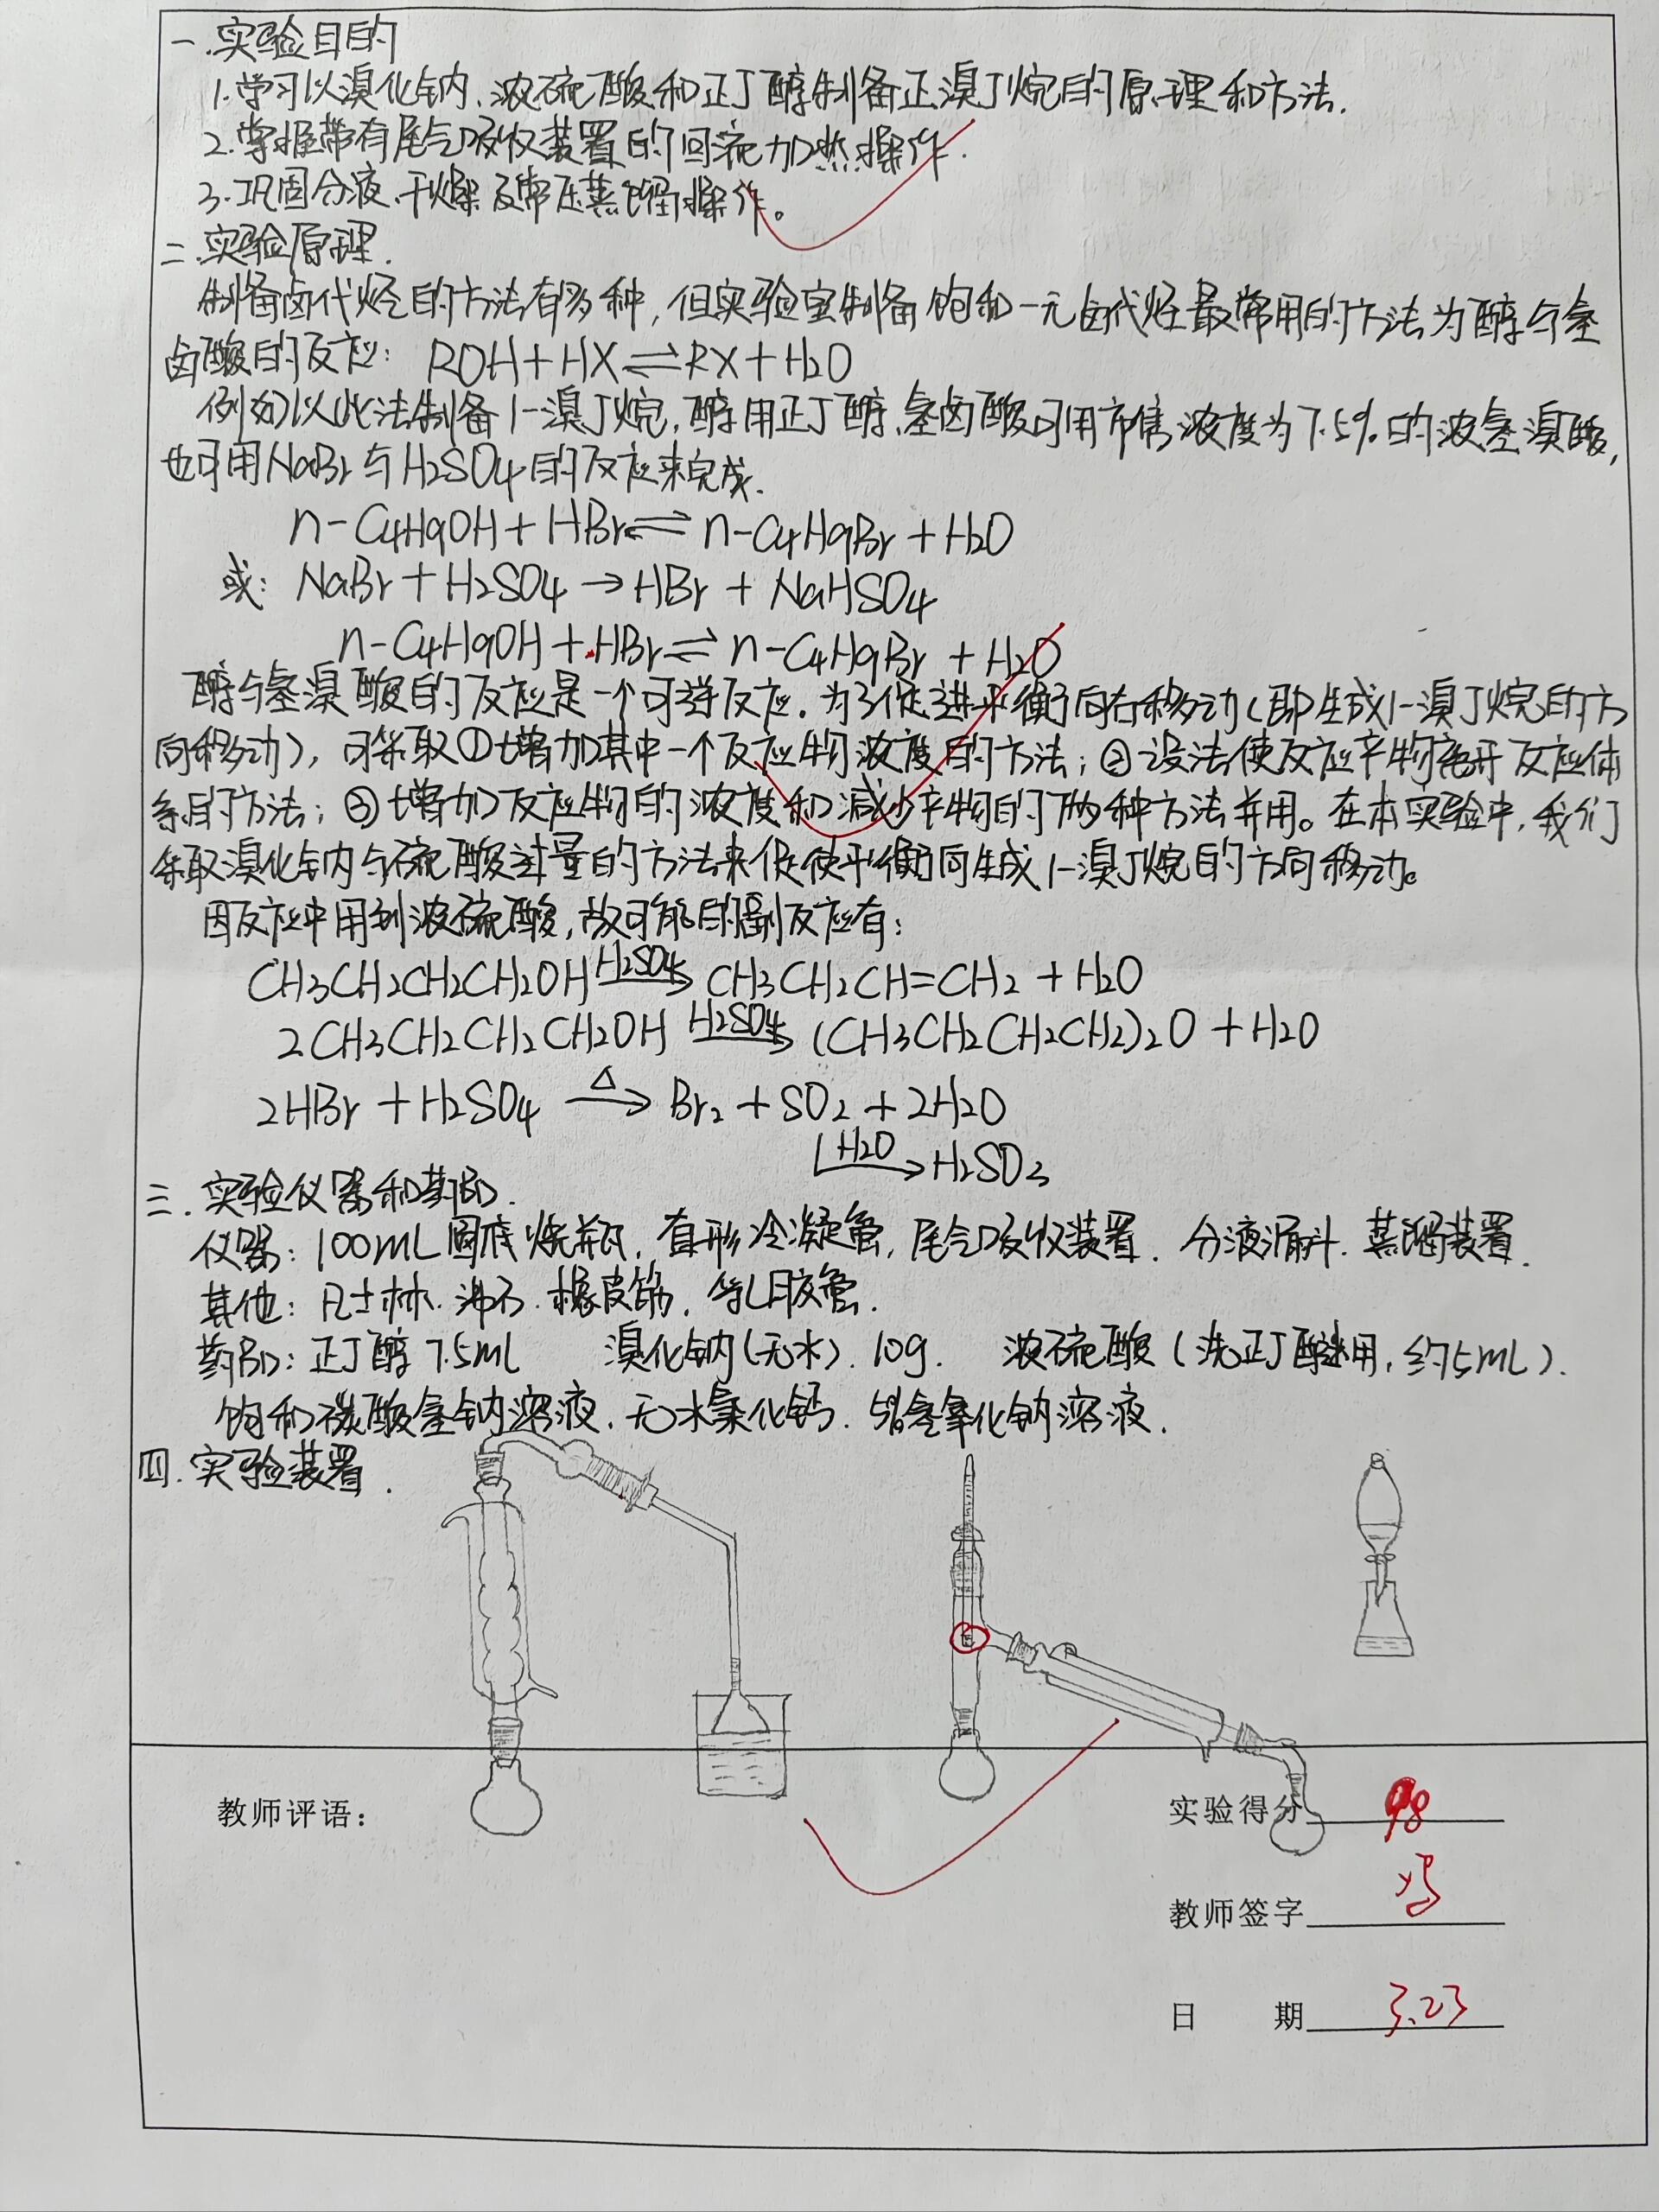 一.实验目的
1.学习以溴化钠、浓硫酸和正丁醇制备正溴丁烷的原理和方法.
2.掌握带有尾气吸收装置的回流加热操作.
3.巩固分液、干燥及常压蒸馏操作。
二.实验原理.
制备卤代烃的方法有多种,但实验室制备饱和一元卤代烃最常用的方法为醇与氢
卤酸的反应: ROH+HX⇌RX+H2O
例如以此法制备1-溴丁烷,醇用正丁醇,氢卤酸可用市售浓度为7.5%的浓氢溴酸,
也可用NaBr与H2SO4的反应来完成.
n-C4H9OH+HBr⇌n-C4H9Br+H2O
或: NaBr+H2SO4→HBr+NaHSO4
n-C4H9OH+HBr⇌n-C4H9Br+H2O
醇与氢溴酸的反应是一个可逆反应.为了促进平衡向右移动(即生成1-溴丁烷的方
向移动),可采取①增加其中一个反应物浓度的方法;②设法使反应产物离开反应体
系的方法;③增加反应物的浓度和减少产物的两种方法并用。在本实验中,我们
采取溴化钠与硫酸过量的方法来促使平衡向生成1-溴丁烷的方向移动。
因反应中用到浓硫酸,故可能的副反应有:
CH3CH2CH2CH2OH H2SO4→ CH3CH2CH=CH2+H2O
2CH3CH2CH2CH2OH H2SO4→ (CH3CH2CH2CH2)2O+H2O
2HBr+H2SO4 △→ Br2+SO2+2H2O
H2O→H2SO3
三.实验仪器和药品.
仪器: 100mL圆底烧瓶,直形冷凝管,尾气吸收装置.分液漏斗.蒸馏装置.
其他: 凡士林.沸石.橡皮筋.乳胶管.
药品: 正丁醇 7.5mL 溴化钠(无水).10g. 浓硫酸(洗正丁醚用,约5mL).
饱和碳酸氢钠溶液.无水氯化钙.5%氢氧化钠溶液.
四.实验装置.
教师评语:
实验得分 98
教师签字
日 期 3.23